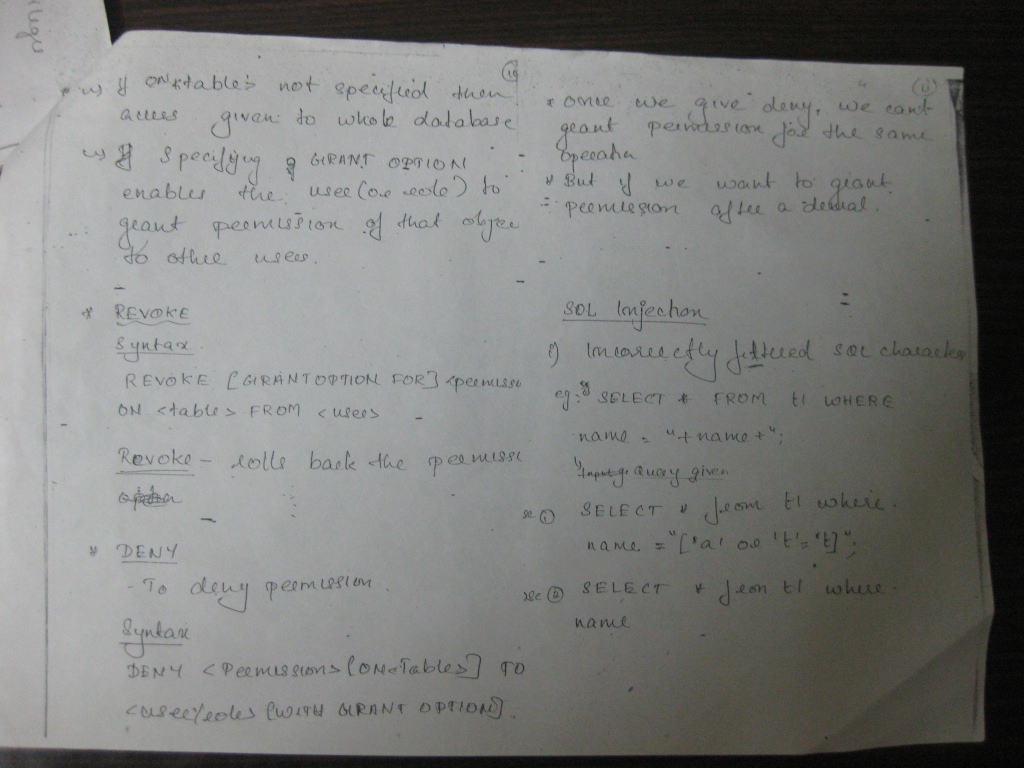 10
If ON<table> not specified then
access given to whole database
If specifying GRANT OPTION
enables the user (or role) to
grant permission of that objec
to other users.
* REVOKE
Syntax
REVOKE [GRANT OPTION FOR] <permissio
ON <table> FROM <user>
Revoke - rolls back the permissi
* DENY
- To deny permission.
Syntax
DENY <Permission> [ON<Table>] TO
<user/role> [WITH GRANT OPTION].
11
* Once we give deny, we cant
grant permission for the same
operation
* But if we want to grant
permission after a denial.
SQL Injection
i) Incorrectly filtered SQL character
eg:- SELECT * FROM t1 WHERE
name = "+name+";
Query given
SELECT * from t1 where
name = "['a' or 't'='t]";
SELECT * from t1 where
name